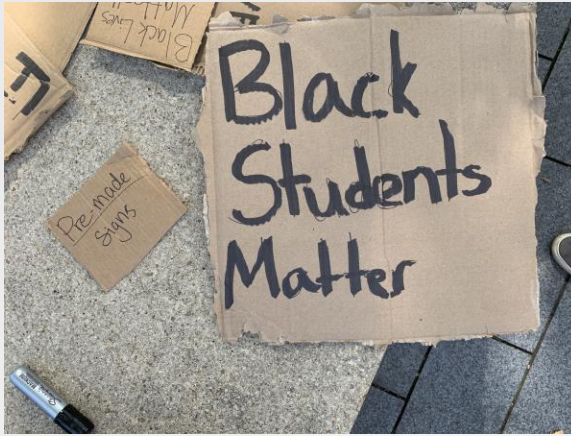 Black Lives
Matter
Black
Students
Matter
Pre-made
Signs